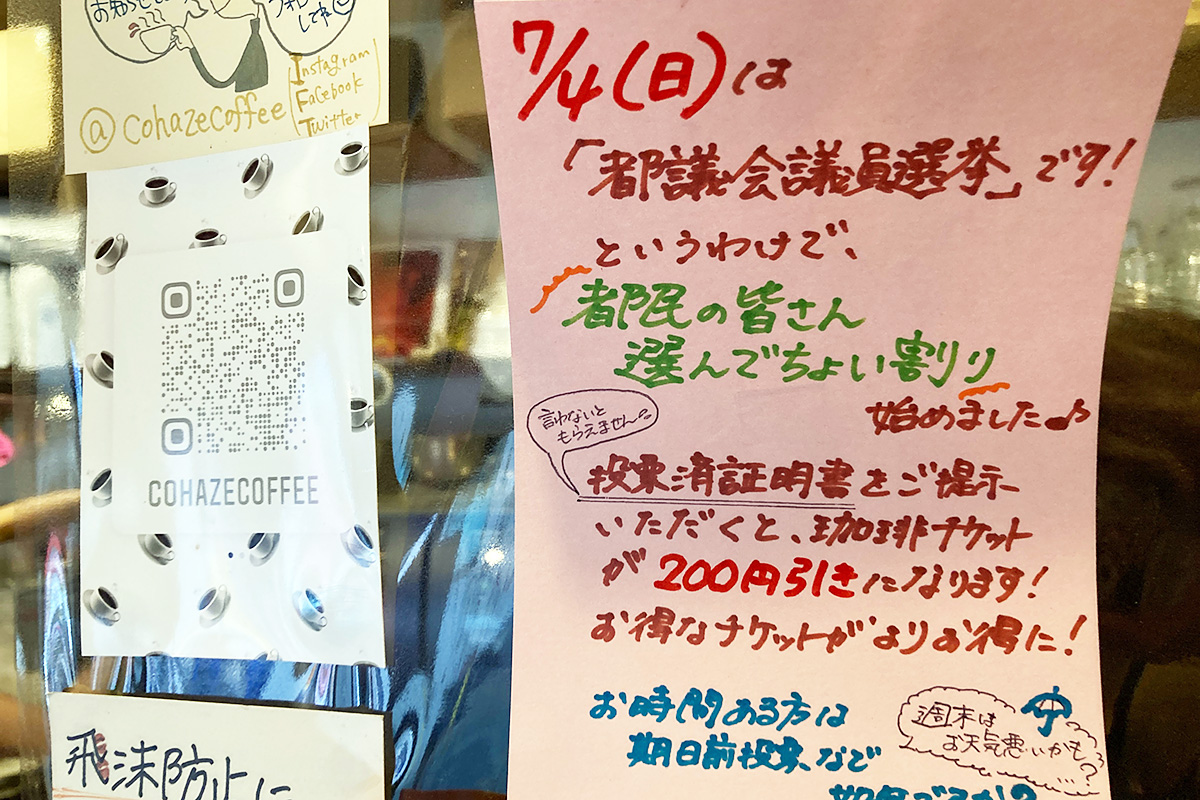 お知らせ
してね
@cohazecoffee
Instagram
Facebook
Twitter
COHAZECOFFEE
飛沫防止に
7/4(日)は
「都議会議員選挙」です!
というわけで、
都民の皆さん
選んでちょい割り
始めました♪
言わないと
もらえません
投票済証明書をご提示
いただくと、珈琲チケット
が200円引きになります!
お得なチケットがよりお得に!
お時間ある方は
期日前投票など
週末は
お天気悪いかも?